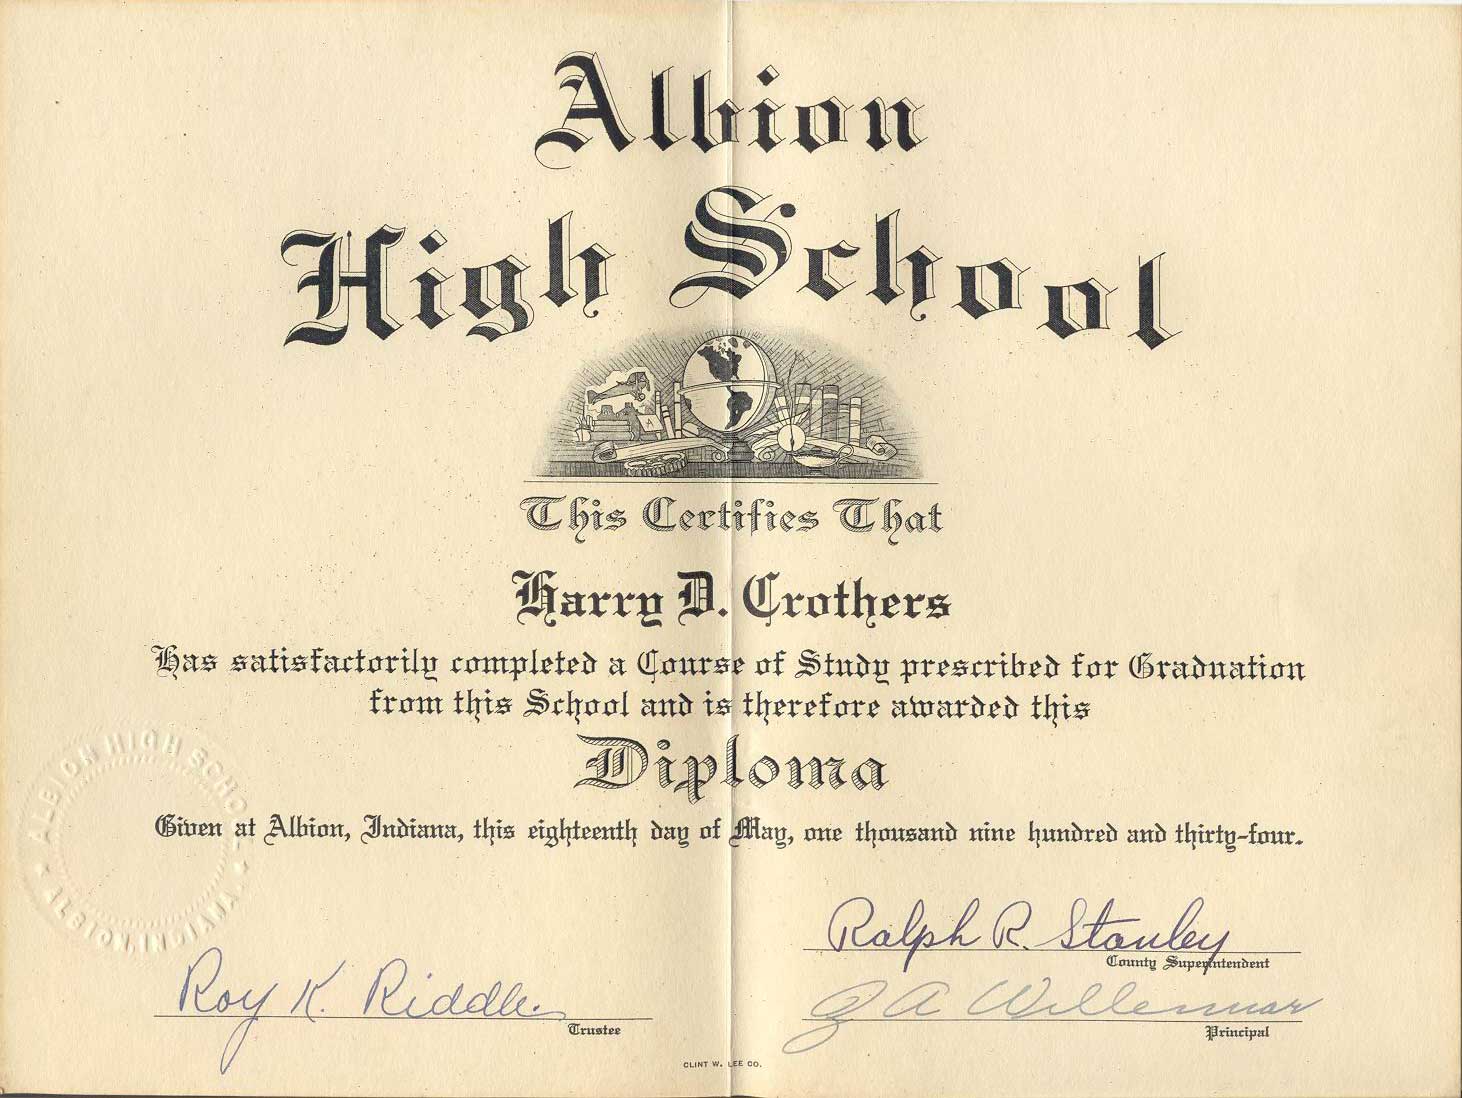 Albion
High School
This Certifies That
Harry D. Crothers
Has satisfactorily completed a Course of Study prescribed for Graduation
from this School and is therefore awarded this
Diploma
Given at Albion, Indiana, this eighteenth day of May, one thousand nine hundred and thirty-four.
ALBION HIGH SCHOOL
★ ALBION, INDIANA ★
Ralph R. Stanley
County Superintendent
Roy K. Riddle
Trustee
A Willennar
Principal
CLINT W. LEE CO.